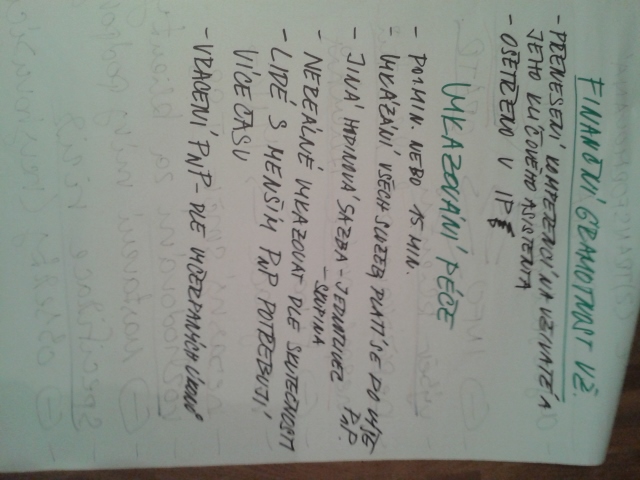 FINANČNÍ GRAMOTNOST UŽ.
- PŘENESENÍ KOMPETENCÍ NA UŽIVATELE A
JEHO KLÍČOVÉHO ASISTENTA
- OŠETŘENO V IP
VYKAZOVÁNÍ PÉČE
- PO 1 MIN. NEBO 15 MIN.
- VYKÁZÁNÍ VŠECH SLUŽEB, PLATÍ SE DO VÝŠE PnP.
- JINÁ HODINOVÁ SAZBA - JEDNOTLIVEC
- SKUPINA
- NEREÁLNÉ VYKAZOVAT DLE SKUTEČNOSTI
- LIDÉ S MENŠÍM PnP POTŘEBUJÍ
VÍCE ČASU
- VRACENÍ PnP - DLE VYČERPANÝCH ÚKONŮ